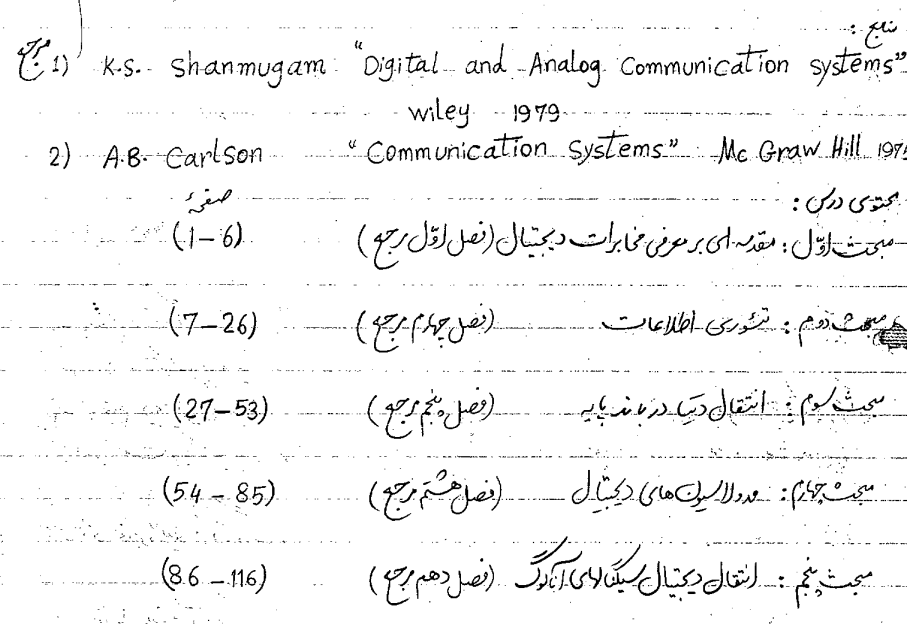 منابع :
مرجع 1) K.S. Shanmugam "Digital and Analog Communication systems"
wiley 1979
2) A.B. Carlson "Communication Systems" Mc Graw Hill
محتوی درس :
صفحهٔ
مبحث اوّل : مقدمه ای بر معرفی مخابرات دیجیتال (فصل اوّل مرجع) (1-6)
مبحث دوم : تئوری اطلاعات (فصل چهارم مرجع) (7-26)
مبحث سوم : انتقال دیتا در باند پایه (فصل پنجم مرجع) (27-53)
مبحث چهارم : مدولاسیون های دیجیتال (فصل هشتم مرجع) (54 - 85)
مبحث پنجم : انتقال دیجیتال سیگنالهای آنالوگ (فصل دهم مرجع) (86 - 116)